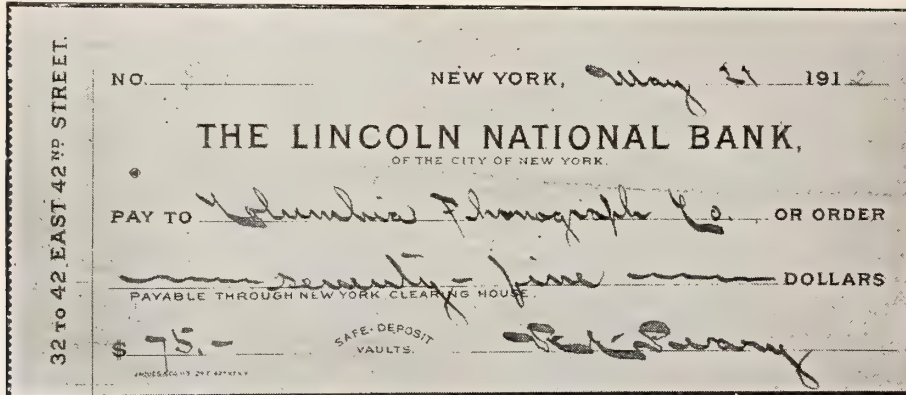 32 TO 42 EAST 42ND STREET.
NO. NEW YORK, May 21 1912
THE LINCOLN NATIONAL BANK,
OF THE CITY OF NEW YORK.
PAY TO Columbia Phonograph Co. OR ORDER
seventy-five DOLLARS
PAYABLE THROUGH NEW YORK CLEARING HOUSE.
$ 75.- SAFE-DEPOSIT
VAULTS.